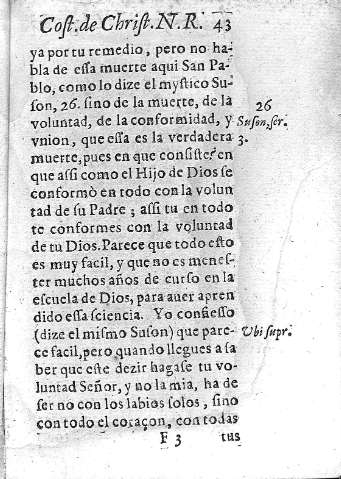 Cost. de Christ. N. R. 43
ya por tu remedio, pero no ha-
bla de essa muerte aqui San Pa-
blo, como lo dize el mystico Su-
son, 26. sino de la muerte, de la
26
voluntad, de la conformidad, y
Suson, ser.
vnion, que essa es la verdadera
3.
muerte, pues en que consiste? en
que assi como el Hijo de Dios se
conformò en todo con la volun
tad de su Padre; assi tu en todo
te conformes con la voluntad
de tu Dios. Parece que todo esto
es muy facil, y que no es menes-
ter muchos años de curso en la
escuela de Dios, para auer apren
dido essa sciencia. Yo confiesso
(dize el mismo Suson) que pare-
Vbi supr.
ce facil, pero quando llegues a sa
ber que este dezir hagase tu vo-
luntad Señor, y no la mia, ha de
ser no con los labios solos, sino
con todo el coraçon, con todas
F 3 tus